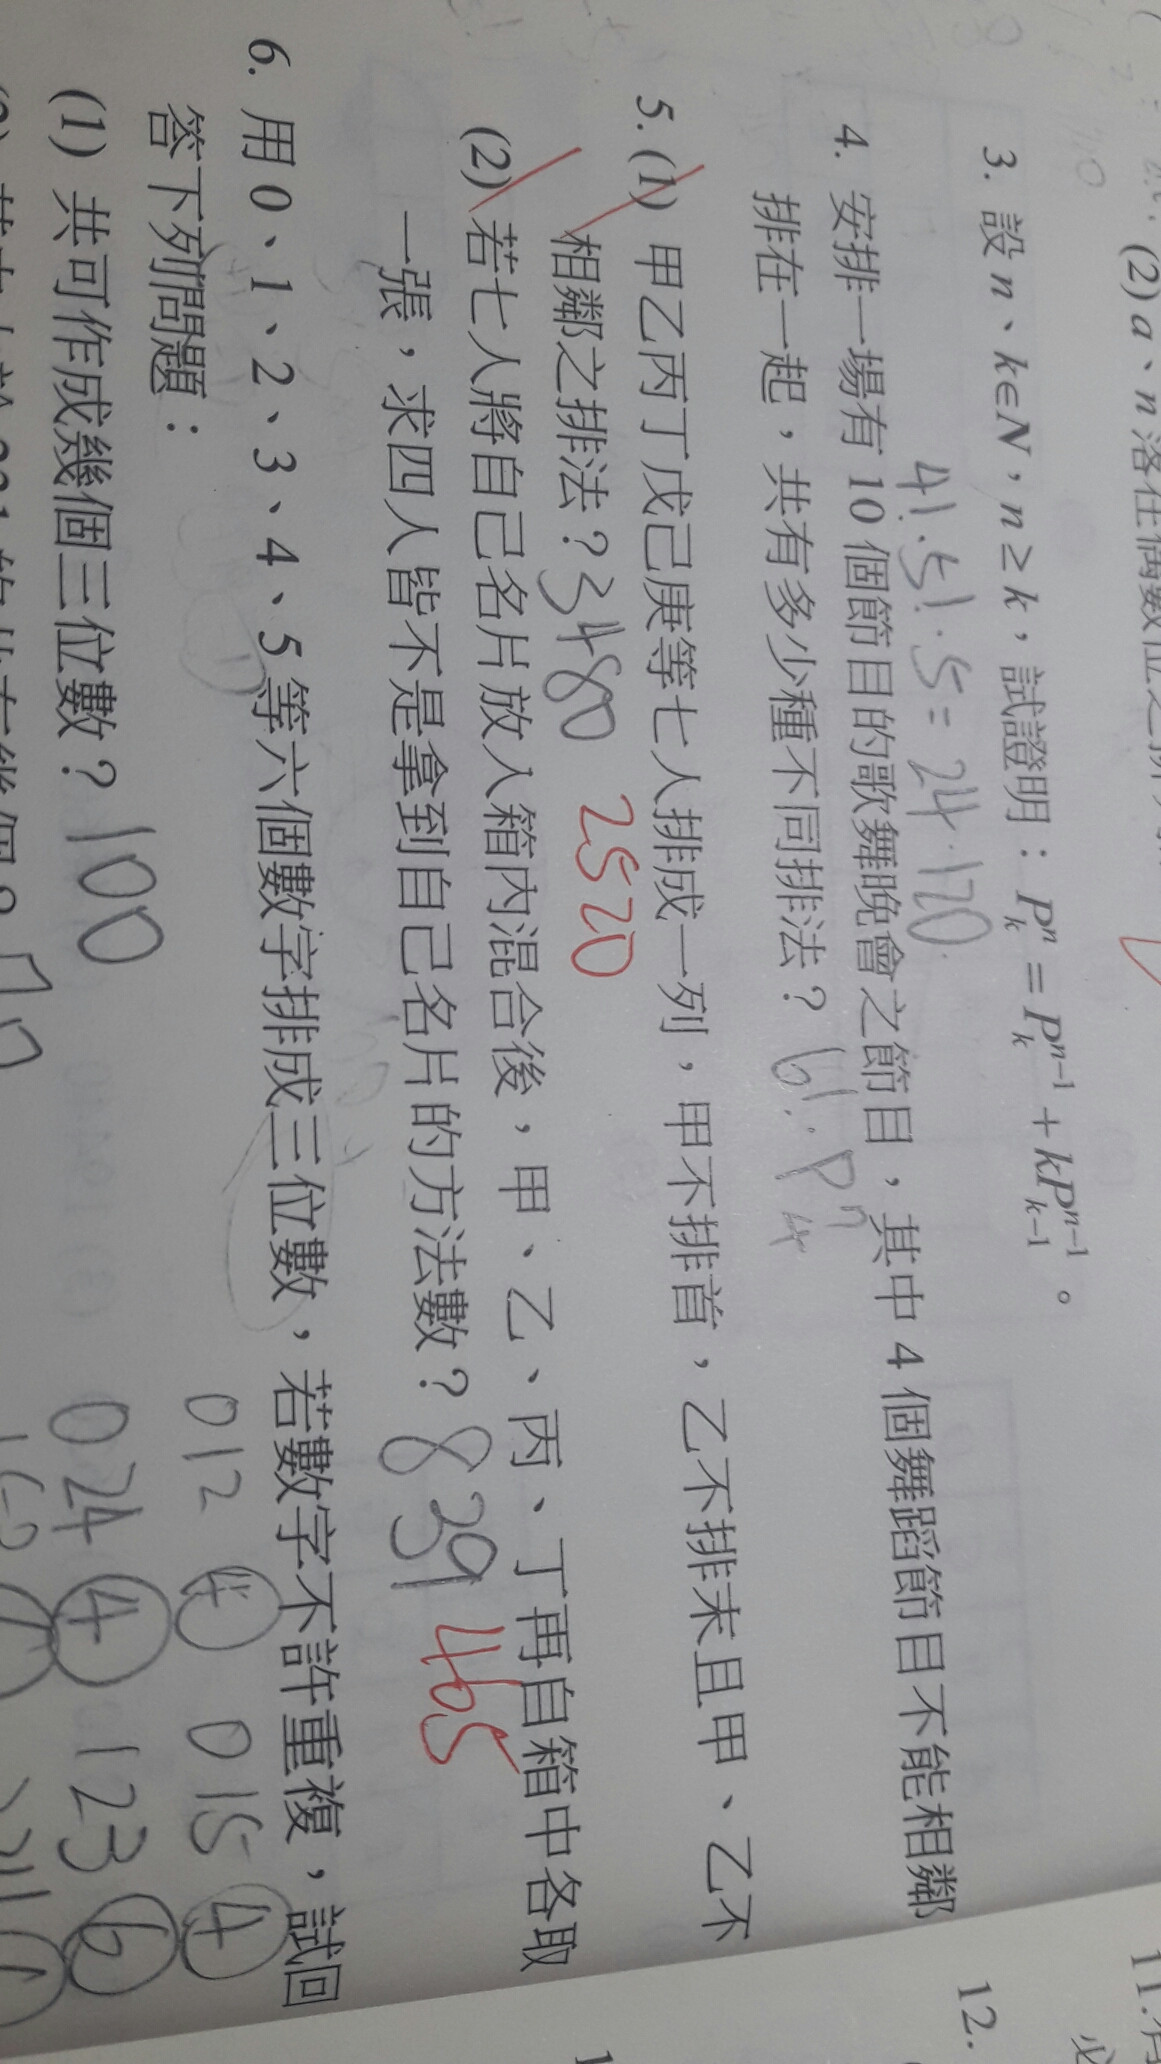 (2) a、n 落在偶數位之排
3. 設 n、k∈N，n ≥ k，試證明：Pⁿₖ = Pⁿ⁻¹ₖ + kPⁿ⁻¹ₖ₋₁。
4!·5!·5=24·120
4. 安排一場有 10 個節目的歌舞晚會之節目，其中 4 個舞蹈節目不能相鄰
排在一起，共有多少種不同排法？6!·P
5. (1) 甲乙丙丁戊己庚等七人排成一列，甲不排首，乙不排末且甲、乙不
相鄰之排法？3480 2520
(2) 若七人將自己名片放入箱內混合後，甲、乙、丙、丁再自箱中各取
一張，求四人皆不是拿到自己名片的方法數？839 465
6. 用 0、1、2、3、4、5 等六個數字排成三位數，若數字不許重複，試回
答下列問題：
012 4 015 4
(1) 共可作成幾個三位數？100
024 4 123 6
11.
12.